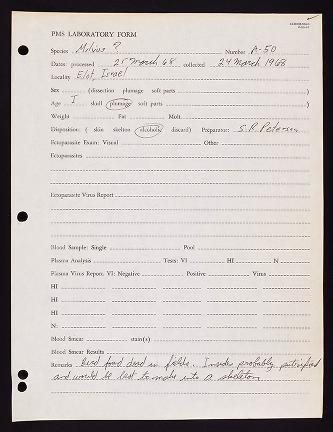 PMS LABORATORY FORM
Species Milvus ? Number P-50
Dates: processed 25 March 68 collected 24 March 1968
Locality Elot, Israel
Sex (dissection plumage soft parts )
Age I skull plumage soft parts )
Weight Fat Molt
Disposition: ( skin skelton alcoholic discard) Preparator: S.R. Peterson
Ectoparasite Exam: Visual Other
Ectoparasites
Ectoparasite Virus Report
Blood Sample: Single Pool
Plasma Analysis Tests: VI HI N
Plasma Virus Report: VI: Negative Positive Virus
HI
HI
HI
N:
Blood Smear stain(s)
Blood Smear Results
Remarks bird found dead in fields. Inside probably putrified
and would be best to make into a skeleton